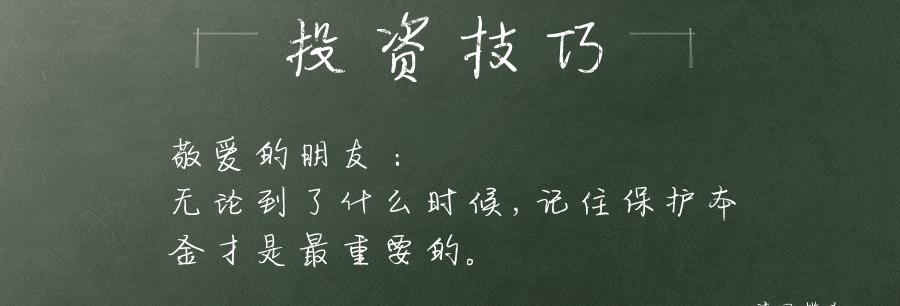 投资技巧
敬爱的朋友：
无论到了什么时候，记住保护本
金才是最重要的。